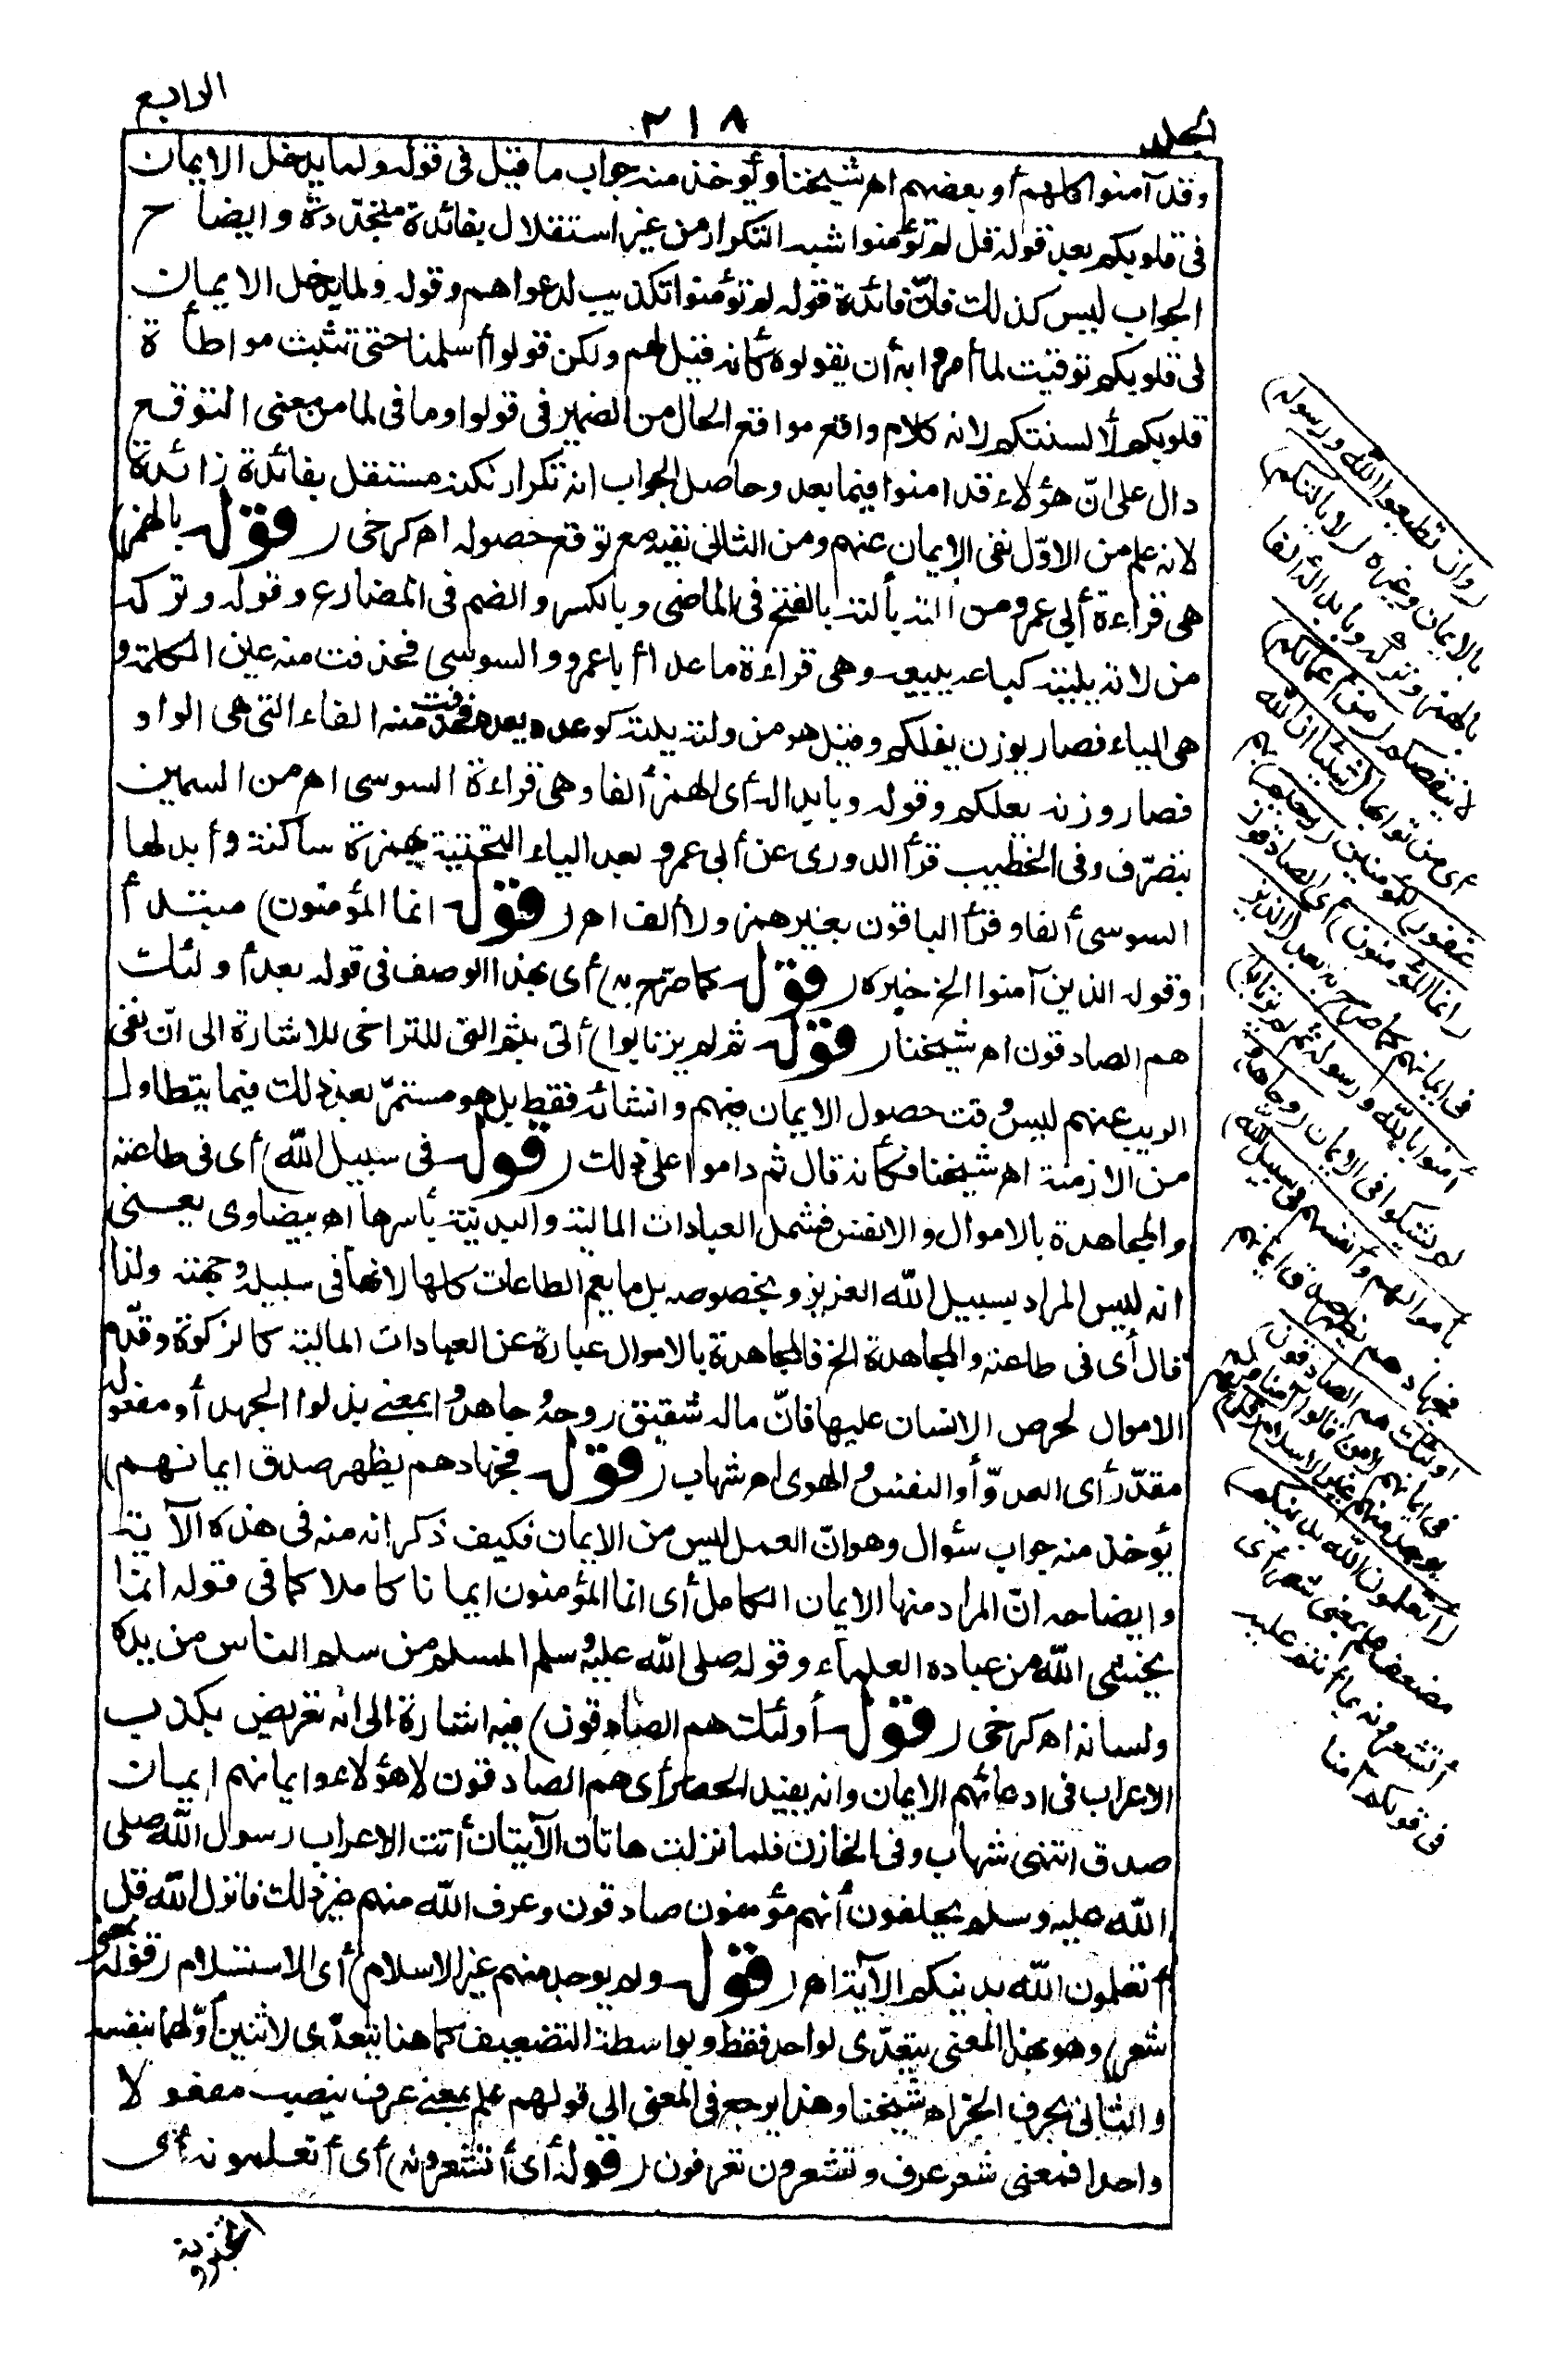 المجلد
٢١٨
الرابع
وقد آمنوا كلهم أو بعضهم اهر شيخنا ويؤخذ منه جواب ما قيل في قوله ولما يدخل الايمان
في قلوبكم بعد قوله قل لم تؤمنوا شبه التكرار من غير استقلال بفائدة متجددة وايضاح
الجواب ليس كذلك فانّ فائدة قوله لم تؤمنوا تكذيب لدعواهم وقوله ولما يدخل الايمان
في قلوبكم توقيت لما أمروا به أن يقولوه كأنه قيل لهم ولكن قولوا أسلمنا حتى تثبت مواطأة
قلوبكم لألسنتكم لانه كلام واقع موقع الحال من الضمير في قولوا وما في لما من معنى التوقع
دال على انّ هؤلاء قد امنوا فيما بعد وحاصل الجواب انه تكرار لكنه مستقل بفائدة زائدة
لانه علم من الاوّل نفى الايمان عنهم ومن الثاني نفيه مع توقع حصوله اهر كرخى (قوله بالهمز)
هى قراءة أبى عمرو من ألته يألته بالفتح في الماضى وبالكسر والضم في المضارع وقوله وتركه
من لاته يليته كباعه يبيعه وهى قراءة ما عدا أبا عمرو والسوسى فحذفت منه عين الكلمة و
هى الياء فصار بوزن يفلكم وقيل هو من ولته يلته كوعده يعده فحذفت منه الفاء التى هى الواو
فصار وزنه يعلكم وقوله وبابداله أى الهمز ألفا وهى قراءة السوسى اهر من السمين
بتصرّف وفى الخطيب قرأ الدورى عن أبى عمرو بعد الياء التحتية بهمزة ساكنة وأبدلها
السوسى ألفا وقرأ الباقون بغير همز ولا ألف اهر (قوله انما المؤمنون) مبتدأ
وقوله الذين آمنوا الخ خبره (قوله كما صرّح به) أى بهذا الوصف في قوله بعد أولئك
هم الصادقون اهر شيخنا (قوله ثم لم يرتابوا) أتى بثم التى للتراخى للاشارة الى انّ نفى
الريب عنهم ليس وقت حصول الايمان فيهم وانشائه فقط بل هو مستمرّ بعد ذلك فيما يتطاول
من الازمنة اهر شيخنا فكأنه قال ثم داموا على ذلك (قوله فى سبيل الله) أى فى طاعته
والمجاهدة بالاموال والانفس فشمل العبادات المالية والبدنية بأسرها اهر بيضاوى يعنى
انه ليس المراد بسبيل الله الغزو بخصوصه بل ما يعم الطاعات كلها لانها في سبيله وجهته ولذا
قال أى فى طاعته والمجاهدة الخ فالمجاهدة بالاموال عبارة عن العبادات المالية كالزكوة وقدّم
الاموال لحرص الانسان عليها فانّ ماله شقيق روحه وجاهدوا بمعنى بذلوا الجهد أو مفعوله
مقدّر أى العدوّ أو النفس والهوى اهر شهاب (قوله فجهادهم يظهر صدق ايمانهم)
يؤخذ منه جواب سؤال وهو انّ العمل ليس من الايمان فكيف ذكر انه منه في هذه الآية
وايضاحه انّ المراد منها الايمان الكامل أى انما المؤمنون ايمانا كاملا كما فى قوله انما
يخشى الله من عباده العلماء وقوله صلى الله عليه وسلم المسلم من سلم الناس من يده
ولسانه اهر كرخى (قوله أولئك هم الصادقون) فيه اشارة الى انه تعريض بكذب
الاعراب فى ادعائهم الايمان وانه يفيد الحصر أى هم الصادقون لا هؤلاء وايمانهم ايمان
صدق انتهى شهاب وفى الخازن فلما نزلت هاتان الآيتان أتت الاعراب رسول الله صلى
الله عليه وسلم يحلفون أنهم مؤمنون صادقون وعرف الله منهم غير ذلك فانزل الله قل
أتعلمون الله بدينكم الآية اهر (قوله ولم يوجد منهم غير الاسلام) أى الاستسلام (قوله بمعنى
شعر) وهو بهذا المعنى يتعدّى لواحد فقط وبواسطة التضعيف كما هنا يتعدّى لاثنين أوّلهما بنفسه
والثانى بحرف الجر اهر شيخنا وهذا يرجع فى المعنى الى قولهم علم بمعنى عرف ينصب مفعولا
واحدا فمعنى شعر عرف وتشعرون تعرفون (قوله أى أتشعرونه) أى أتعلمونه أى
(وان تطيعوا الله ورسوله)
بالايمان وغيره (لا يألتكم)
بالهمز وتركه وبابداله ألفا
لا ينقصكم (من أعمالكم)
أى من ثوابها (شيئا ان الله
غفور) للمؤمنين (رحيم) بهم
(انما المؤمنون) أى الصادقون
فى ايمانهم كما صرح به بعد (الذين
آمنوا بالله ورسوله ثم لم يرتابوا)
لم يشكوا فى الايمان (وجاهدوا
بأموالهم وأنفسهم فى سبيل الله)
فجهادهم يظهر صدق ايمانهم
(أولئك هم الصادقون)
فى ايمانهم لا من قالوا آمنا ولم
يوجد منهم غير الاسلام (قل) لهم
(أتعلمون الله بدينكم)
مضعف علم بمعنى شعر أى
أتشعرونه بما أنتم عليه
فى قولكم آمنا